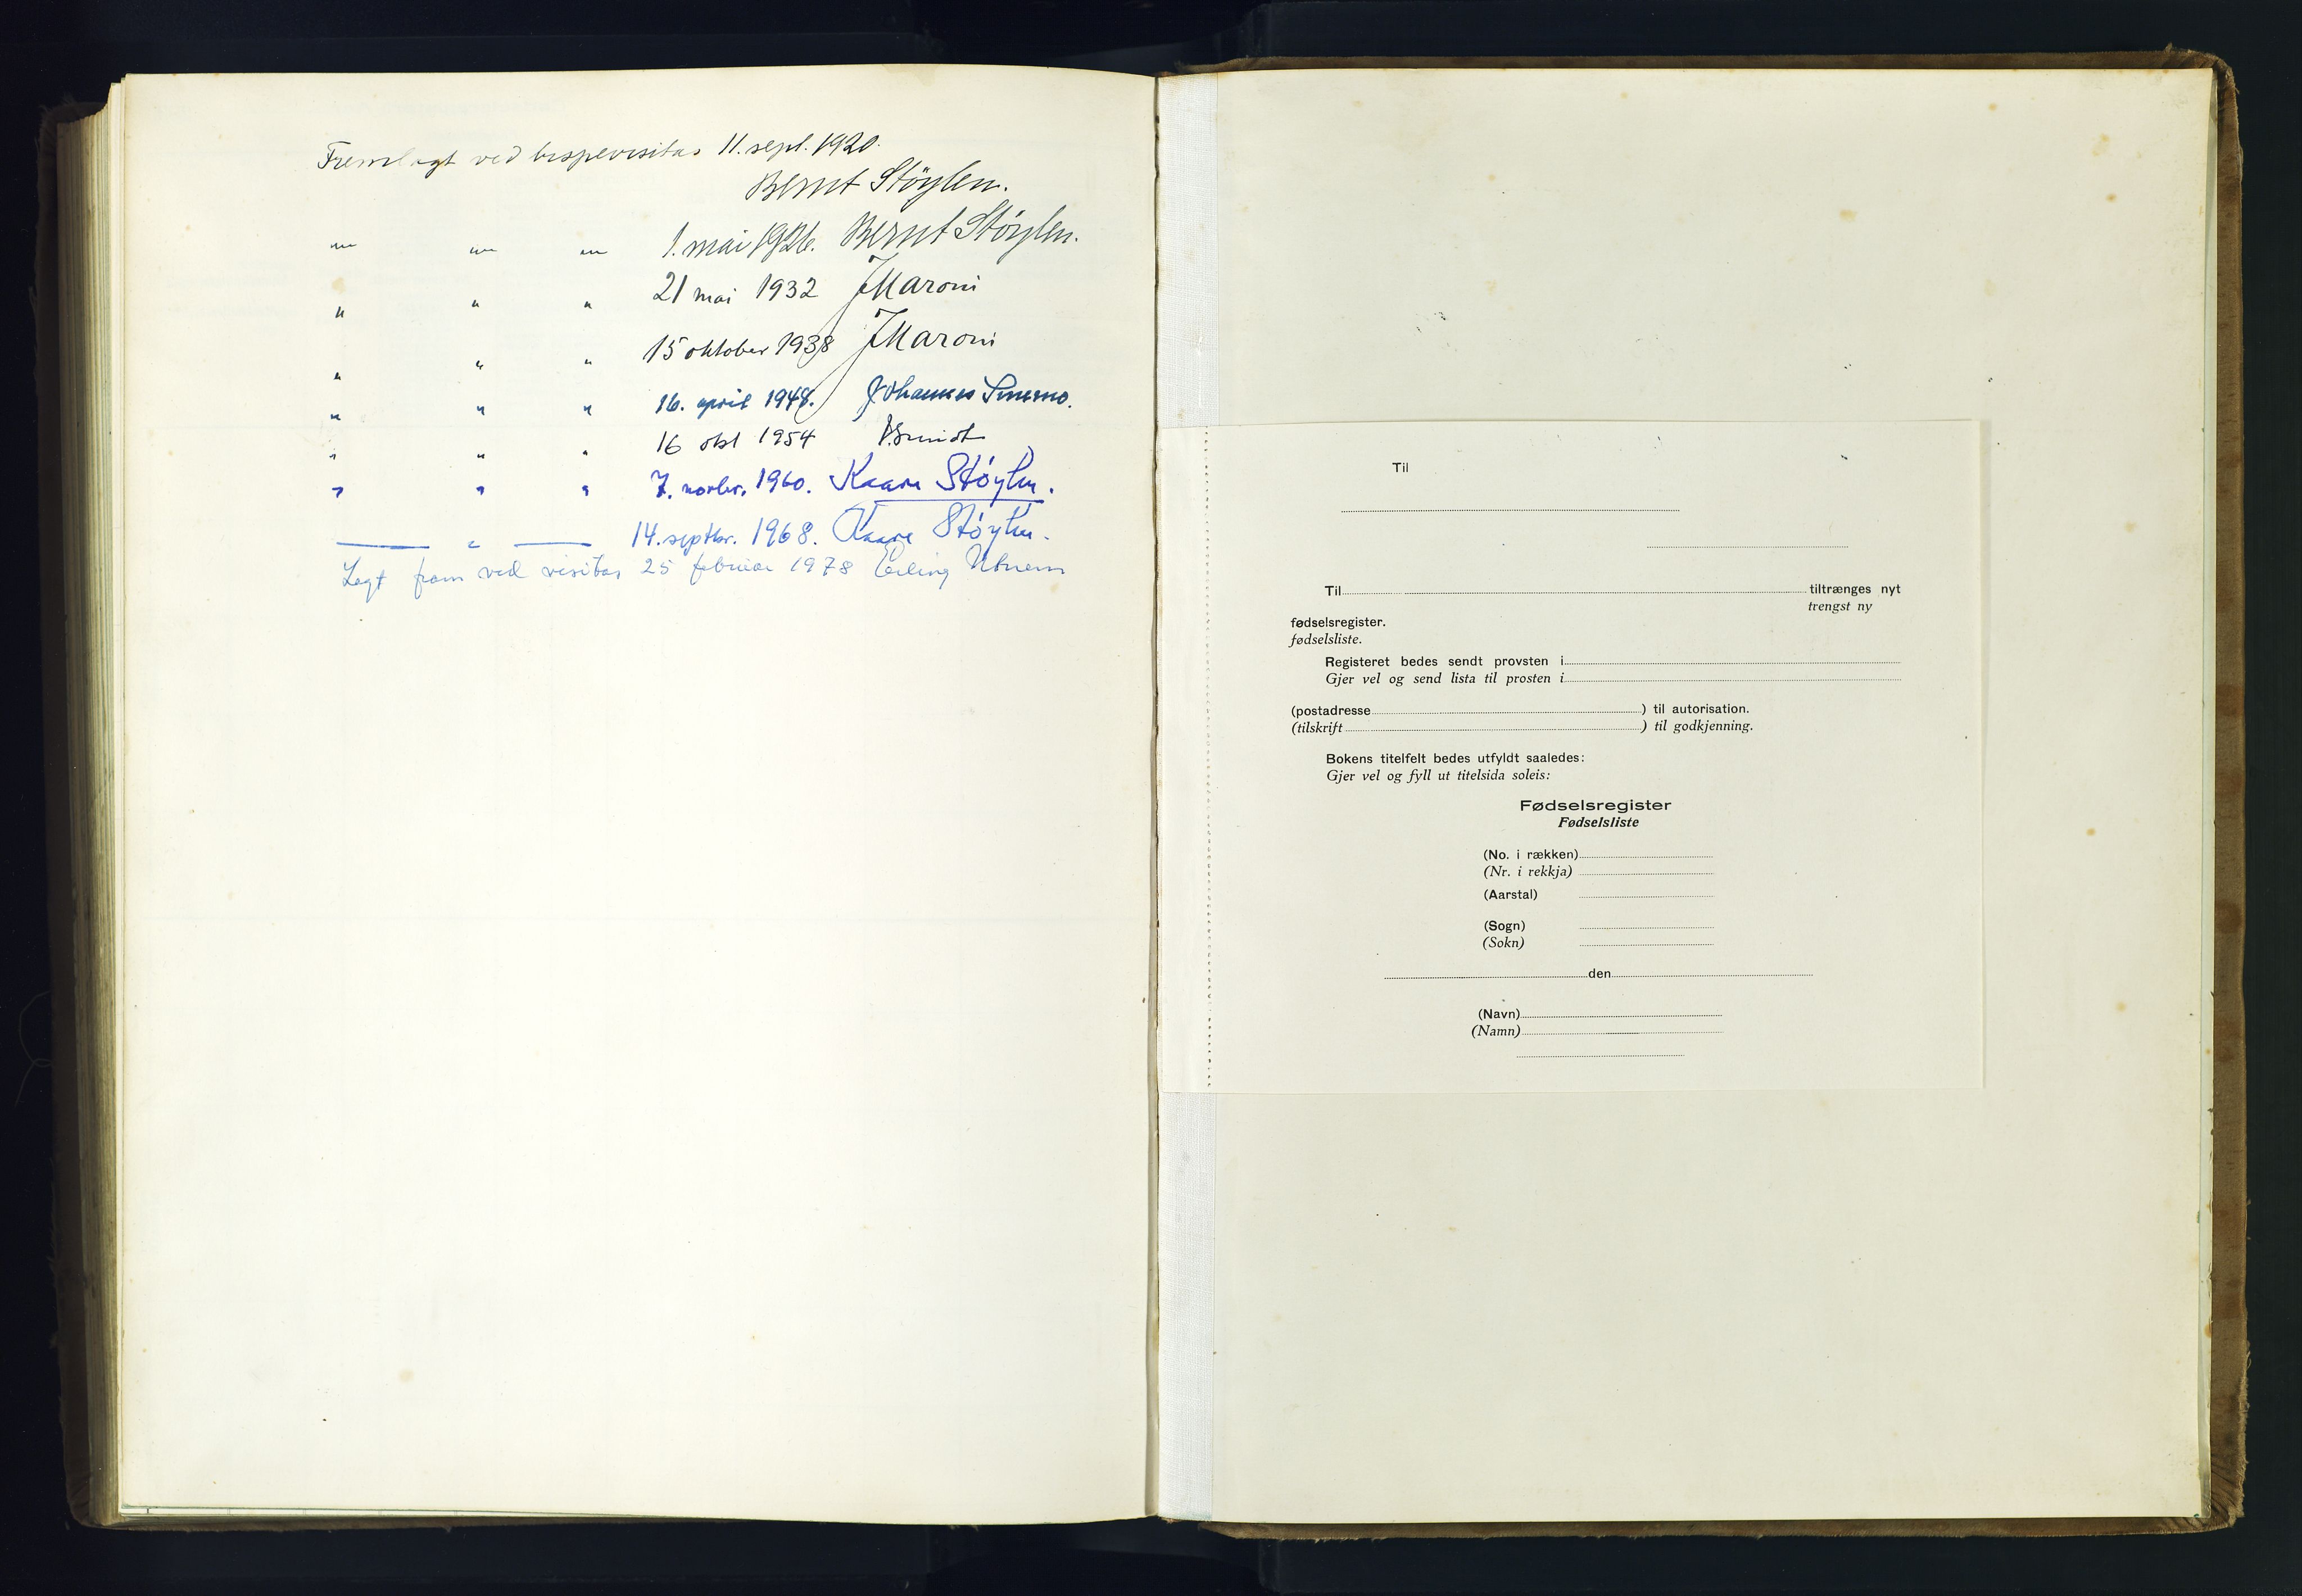 Fremlagt ved bispevisitas 11. sept. 1920.
Bernt Støylen.
" " " 1. mai 1926. Bernt Støylen.
" " " 21 mai 1932 JMaroni
" " " 15 oktober 1938 JMaroni
" " " 16. april 1948. Johannes Smemo.
" " " 16 okt 1954 J. Smidt
" " " 7. novbr. 1960. Kaare Støylen.
— " — 14. septbr. 1968. Kaare Støylen.
Lagt fram ved visitas 25 februar 1978 Erling Utnem
Til
Til tiltrænges nyt
trengst ny
fødselsregister.
fødselsliste.
Registeret bedes sendt provsten i
Gjer vel og send lista til prosten i
(postadresse ) til autorisation.
(tilskrift ) til godkjenning.
Bokens titelfelt bedes utfyldt saaledes:
Gjer vel og fyll ut titelsida soleis:
Fødselsregister
Fødselsliste
(No. i rækken)
(Nr. i rekkja)
(Aarstal)
(Sogn)
(Sokn)
den
(Navn)
(Namn)